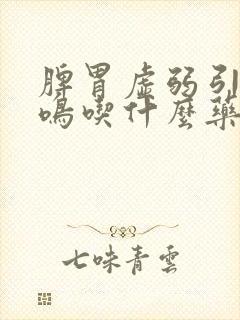 脾胃虛弱引
鳴喫什麼藥
七味青雲